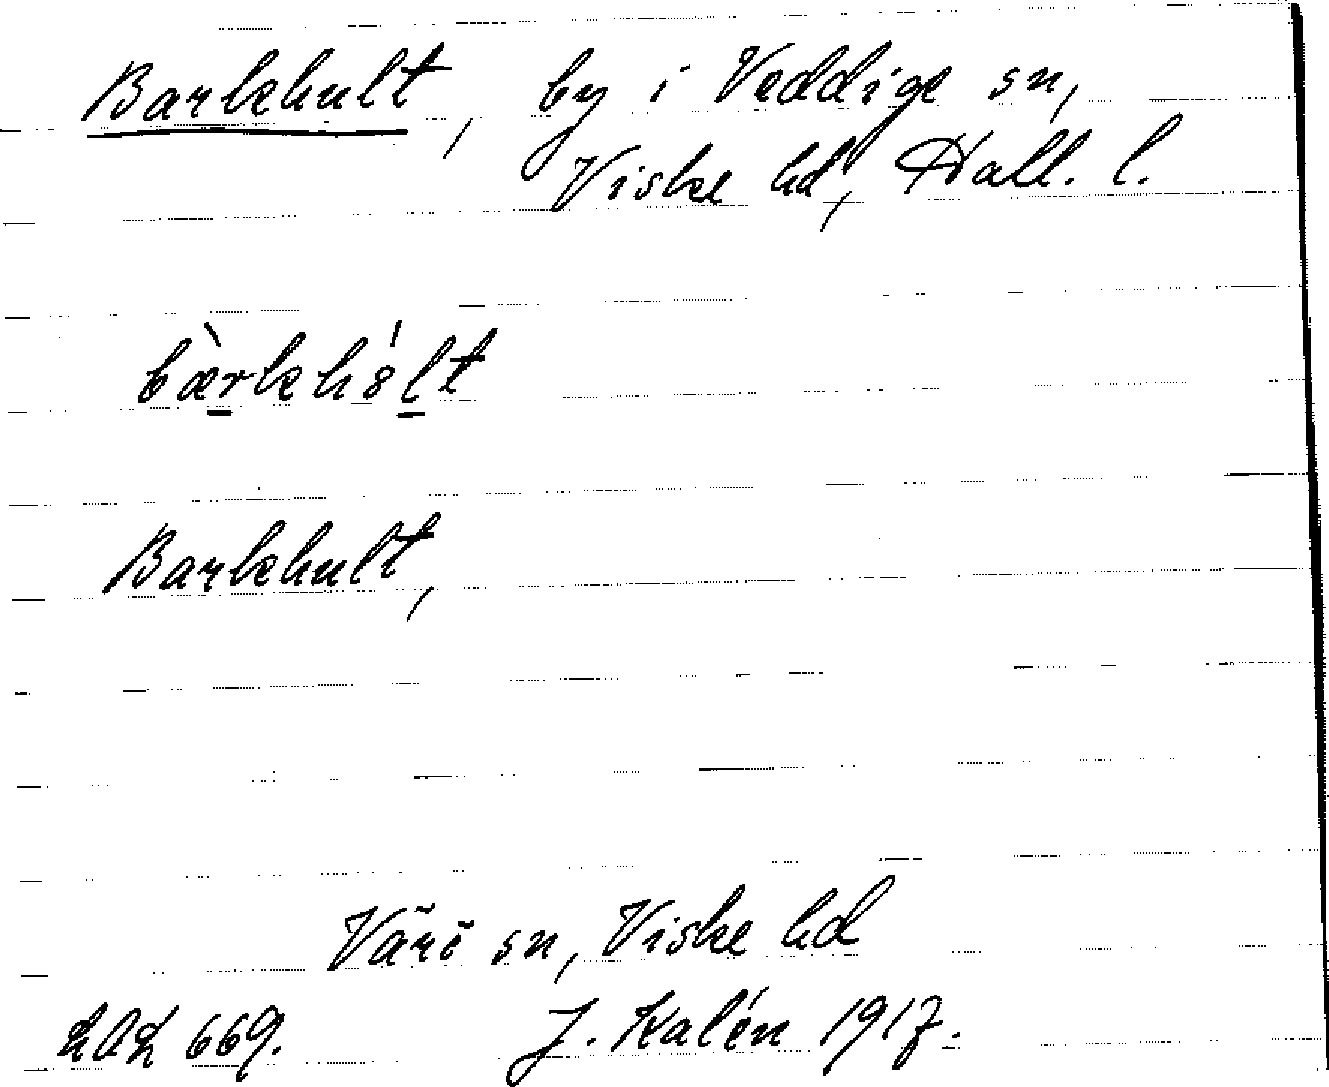 Barkhult, by i Veddige sn,
Viske hd, Hall. l.
Barkhult,
Värö sn, Viske hd
LAL 669. J. Kalén 1917.